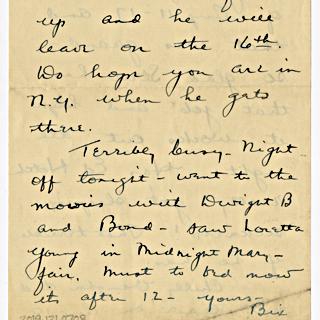 up and he will
leave on the 16th.
Do hope you are in
N.Y. when he gets
there.
Terribly busy - Night
off tonight - went to the
movies with Dwight B
and Bond - saw Loretta
Young in Midnight Mary -
fair. Must to bed now
its after 12 - yours -
Bix
2019.121.0708